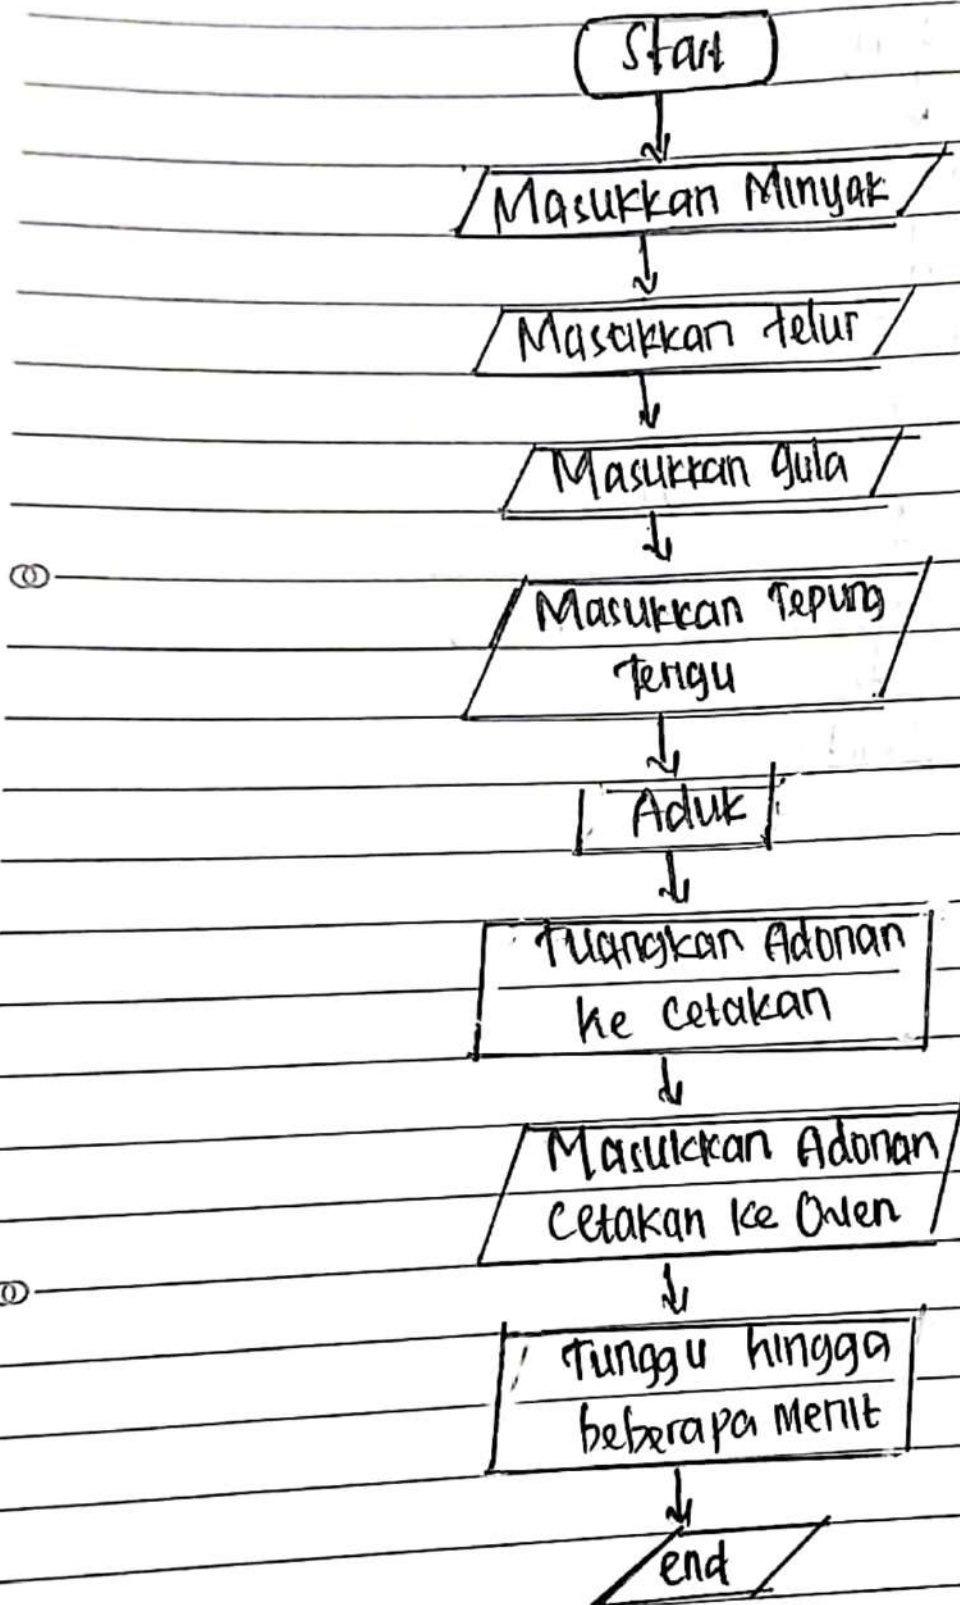 Start
Masukkan Minyak
Masukkan telur
Masukkan gula
Masukkan Tepung
Terigu
Aduk
Tuangkan Adonan
ke cetakan
Masukkan Adonan
Cetakan ke Oven
Tunggu hingga
beberapa Menit
end